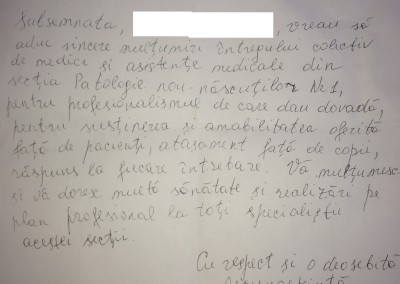 Subsemnata, , vreau să
aduc sincere mulțumiri întregului colectiv
de medici și asistențe medicale din
secția Patologie nou-născuților № 1,
pentru profesionalismul de care dau dovadă,
pentru susținerea și amabilitatea oferită
față de pacienți, atașament față de copii,
răspuns la fiecare întrebare. Vă mulțumesc
și vă doresc multă sănătate și realizări pe
plan profesional la toți specialiștii
acestei secții.
Cu respect și o deosebită